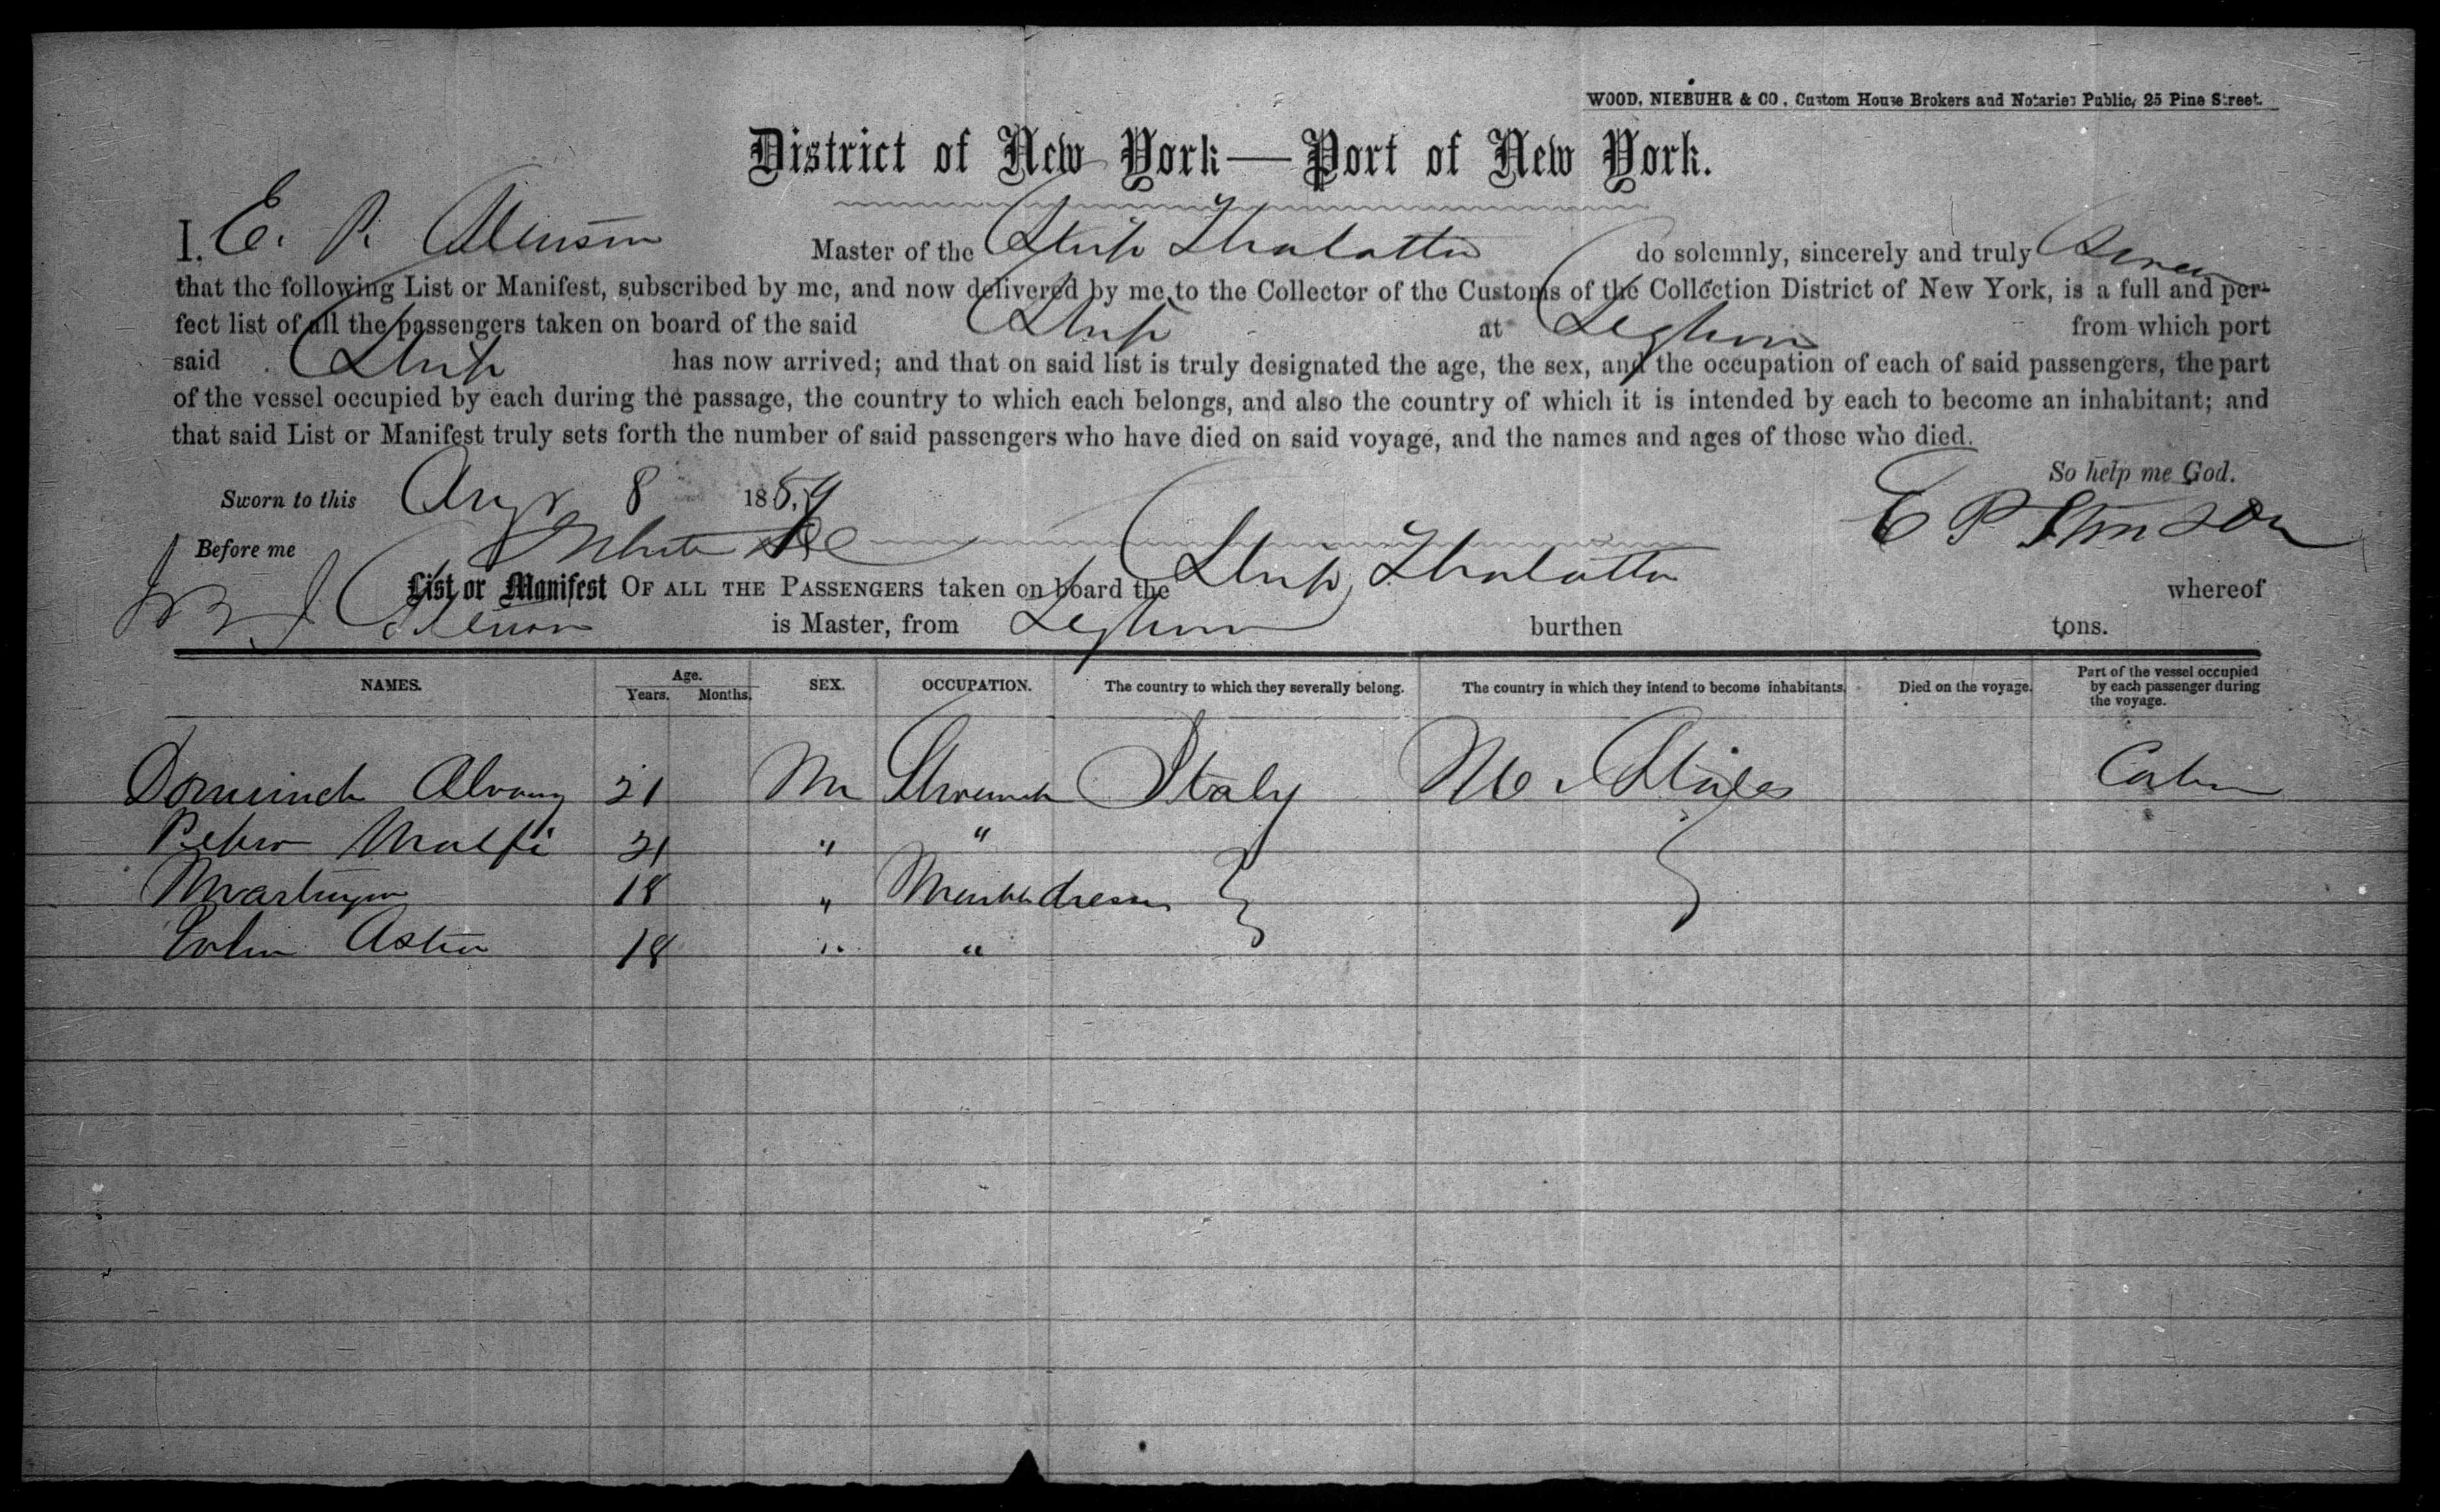 WOOD, NIEBUHR & CO, Custom House Brokers and Notaries Public, 25 Pine Street.
District of New York—Port of New York.
I, E. P. Stinson Master of the Ship Thalatta do solemnly, sincerely and truly Swear
that the following List or Manifest, subscribed by me, and now delivered by me to the Collector of the Customs of the Collection District of New York, is a full and per-
fect list of all the passengers taken on board of the said Ship at Leghorn from which port
said Ship has now arrived; and that on said list is truly designated the age, the sex, and the occupation of each of said passengers, the part
of the vessel occupied by each during the passage, the country to which each belongs, and also the country of which it is intended by each to become an inhabitant; and
that said List or Manifest truly sets forth the number of said passengers who have died on said voyage, and the names and ages of those who died.
So help me God.
Sworn to this Aug 8 1859
E P Stinson
Before me
List or Manifest OF ALL THE PASSENGERS taken on board the Ship Thalatta whereof
is Master, from Leghorn burthen tons.
NAMES. Age. Years. Months. SEX. OCCUPATION. The country to which they severally belong. The country in which they intend to become inhabitants. Died on the voyage. Part of the vessel occupied by each passenger during the voyage.
21 M Italy States Cabin
Pietro 21 " "
18 "
18 " "